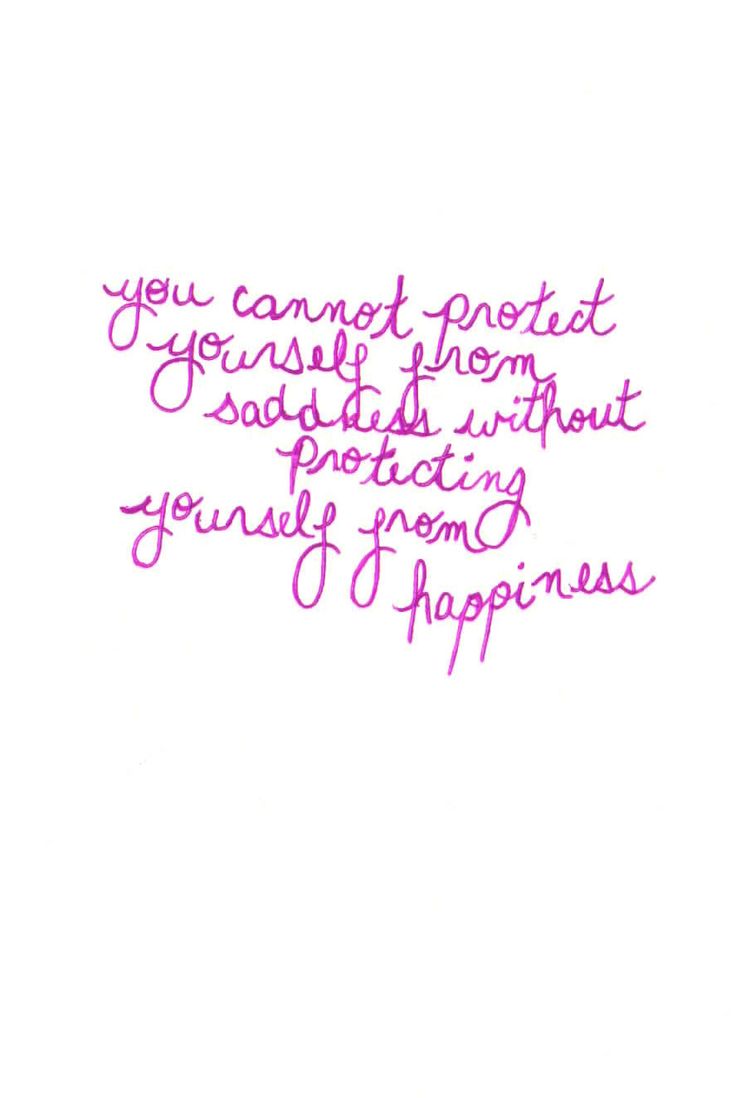 you cannot protect
yourself from
saddness without
protecting
yourself from
happiness